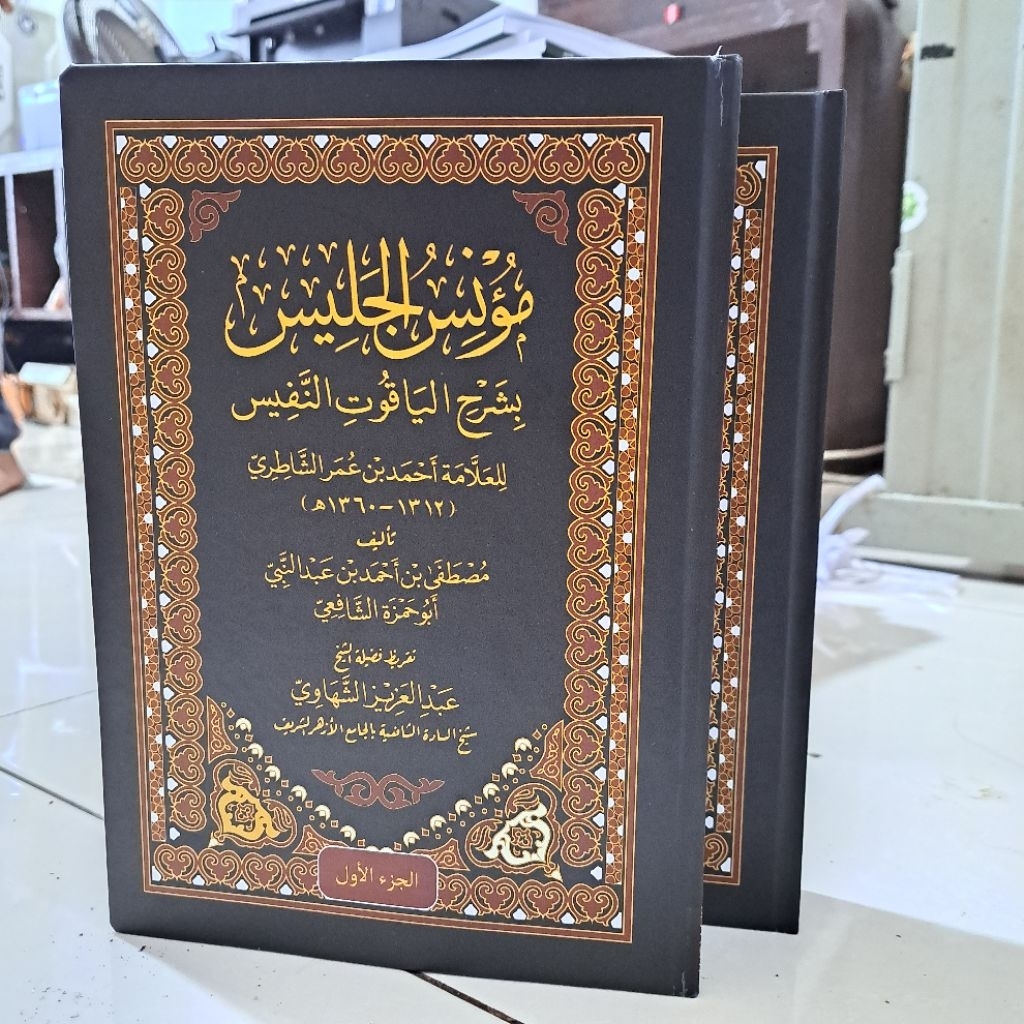 مُؤْنِسُ الجَلِيسِ
بِشَرْحِ اليَاقُوتِ النَّفِيسِ
لِلعَلَّامَة أَحْمَد بْن عُمَر الشَّاطِرِيّ
(١٣١٢-١٣٦٠هـ)
تأليف
مُصْطَفَىٰ بْن أَحْمَد بْن عَبْد النَّبِيّ
أَبُو حَمْزَة الشَّافِعِيّ
تقريظ فضيلة الشيخ
عَبْدِ العَزِيزِ الشَّهَاوِيّ
شيخ السادة الشافعية بالجامع الأزهر الشريف
الجزء الأول